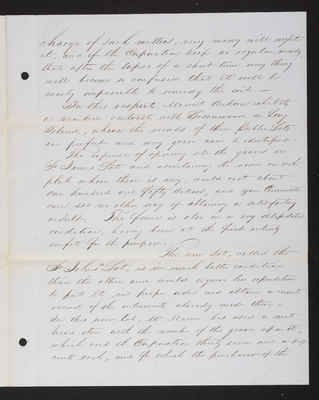 charge of such matters, very many will neglect
it, and if the Corporation keep no regular record
then after the lapse of a short time every thing
will become a confusion that it will be
nearly impossible to remedy the evil.
In this respect Mount Auburn exhibits
a contrast with Greenwood on Long
Island, where the records of their Public Lots
are perfect and any grave can be identified.
The expense of opening all the graves on
St James Lot and numbering the same on each
plate where there is any would cost about
one hundred and fifty dollars, and your Committee
can see no other way of attaining a satisfactory
result. The fence is also in a very dilapidated
condition, having been at the first entirely
unfit for the purpose.
The new Lot, called the
St John's Lot, is in much better condition
than the other and would require less expenditure
to put it in proper order and obtain a correct
record of the interments already made there.
In this new Lot, Mr has used a
stone with the number of the grave upon it,
which cost the Corporation thirty seven and a half
cents each, and for which the purchaser of the